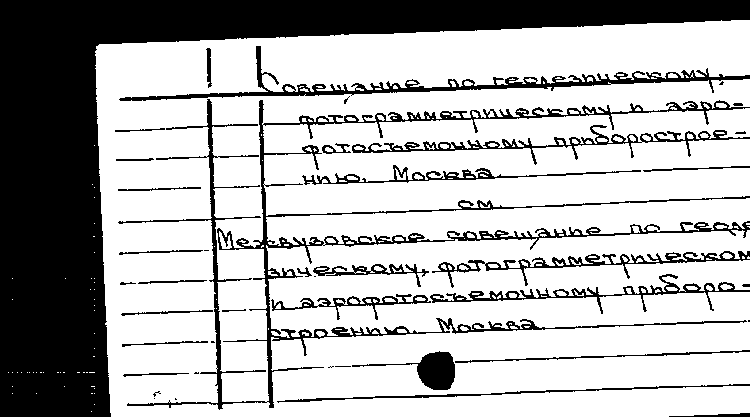 Совещание по геодезическому,
фотограмметрическому и аэро-
фотосъемочному приборострое-
нию. Москва.
см.
Межвузовское совещание по геоде
зическому, фотограмметрическом
и аэрофотосъемочному приборо-
строению. Москва.